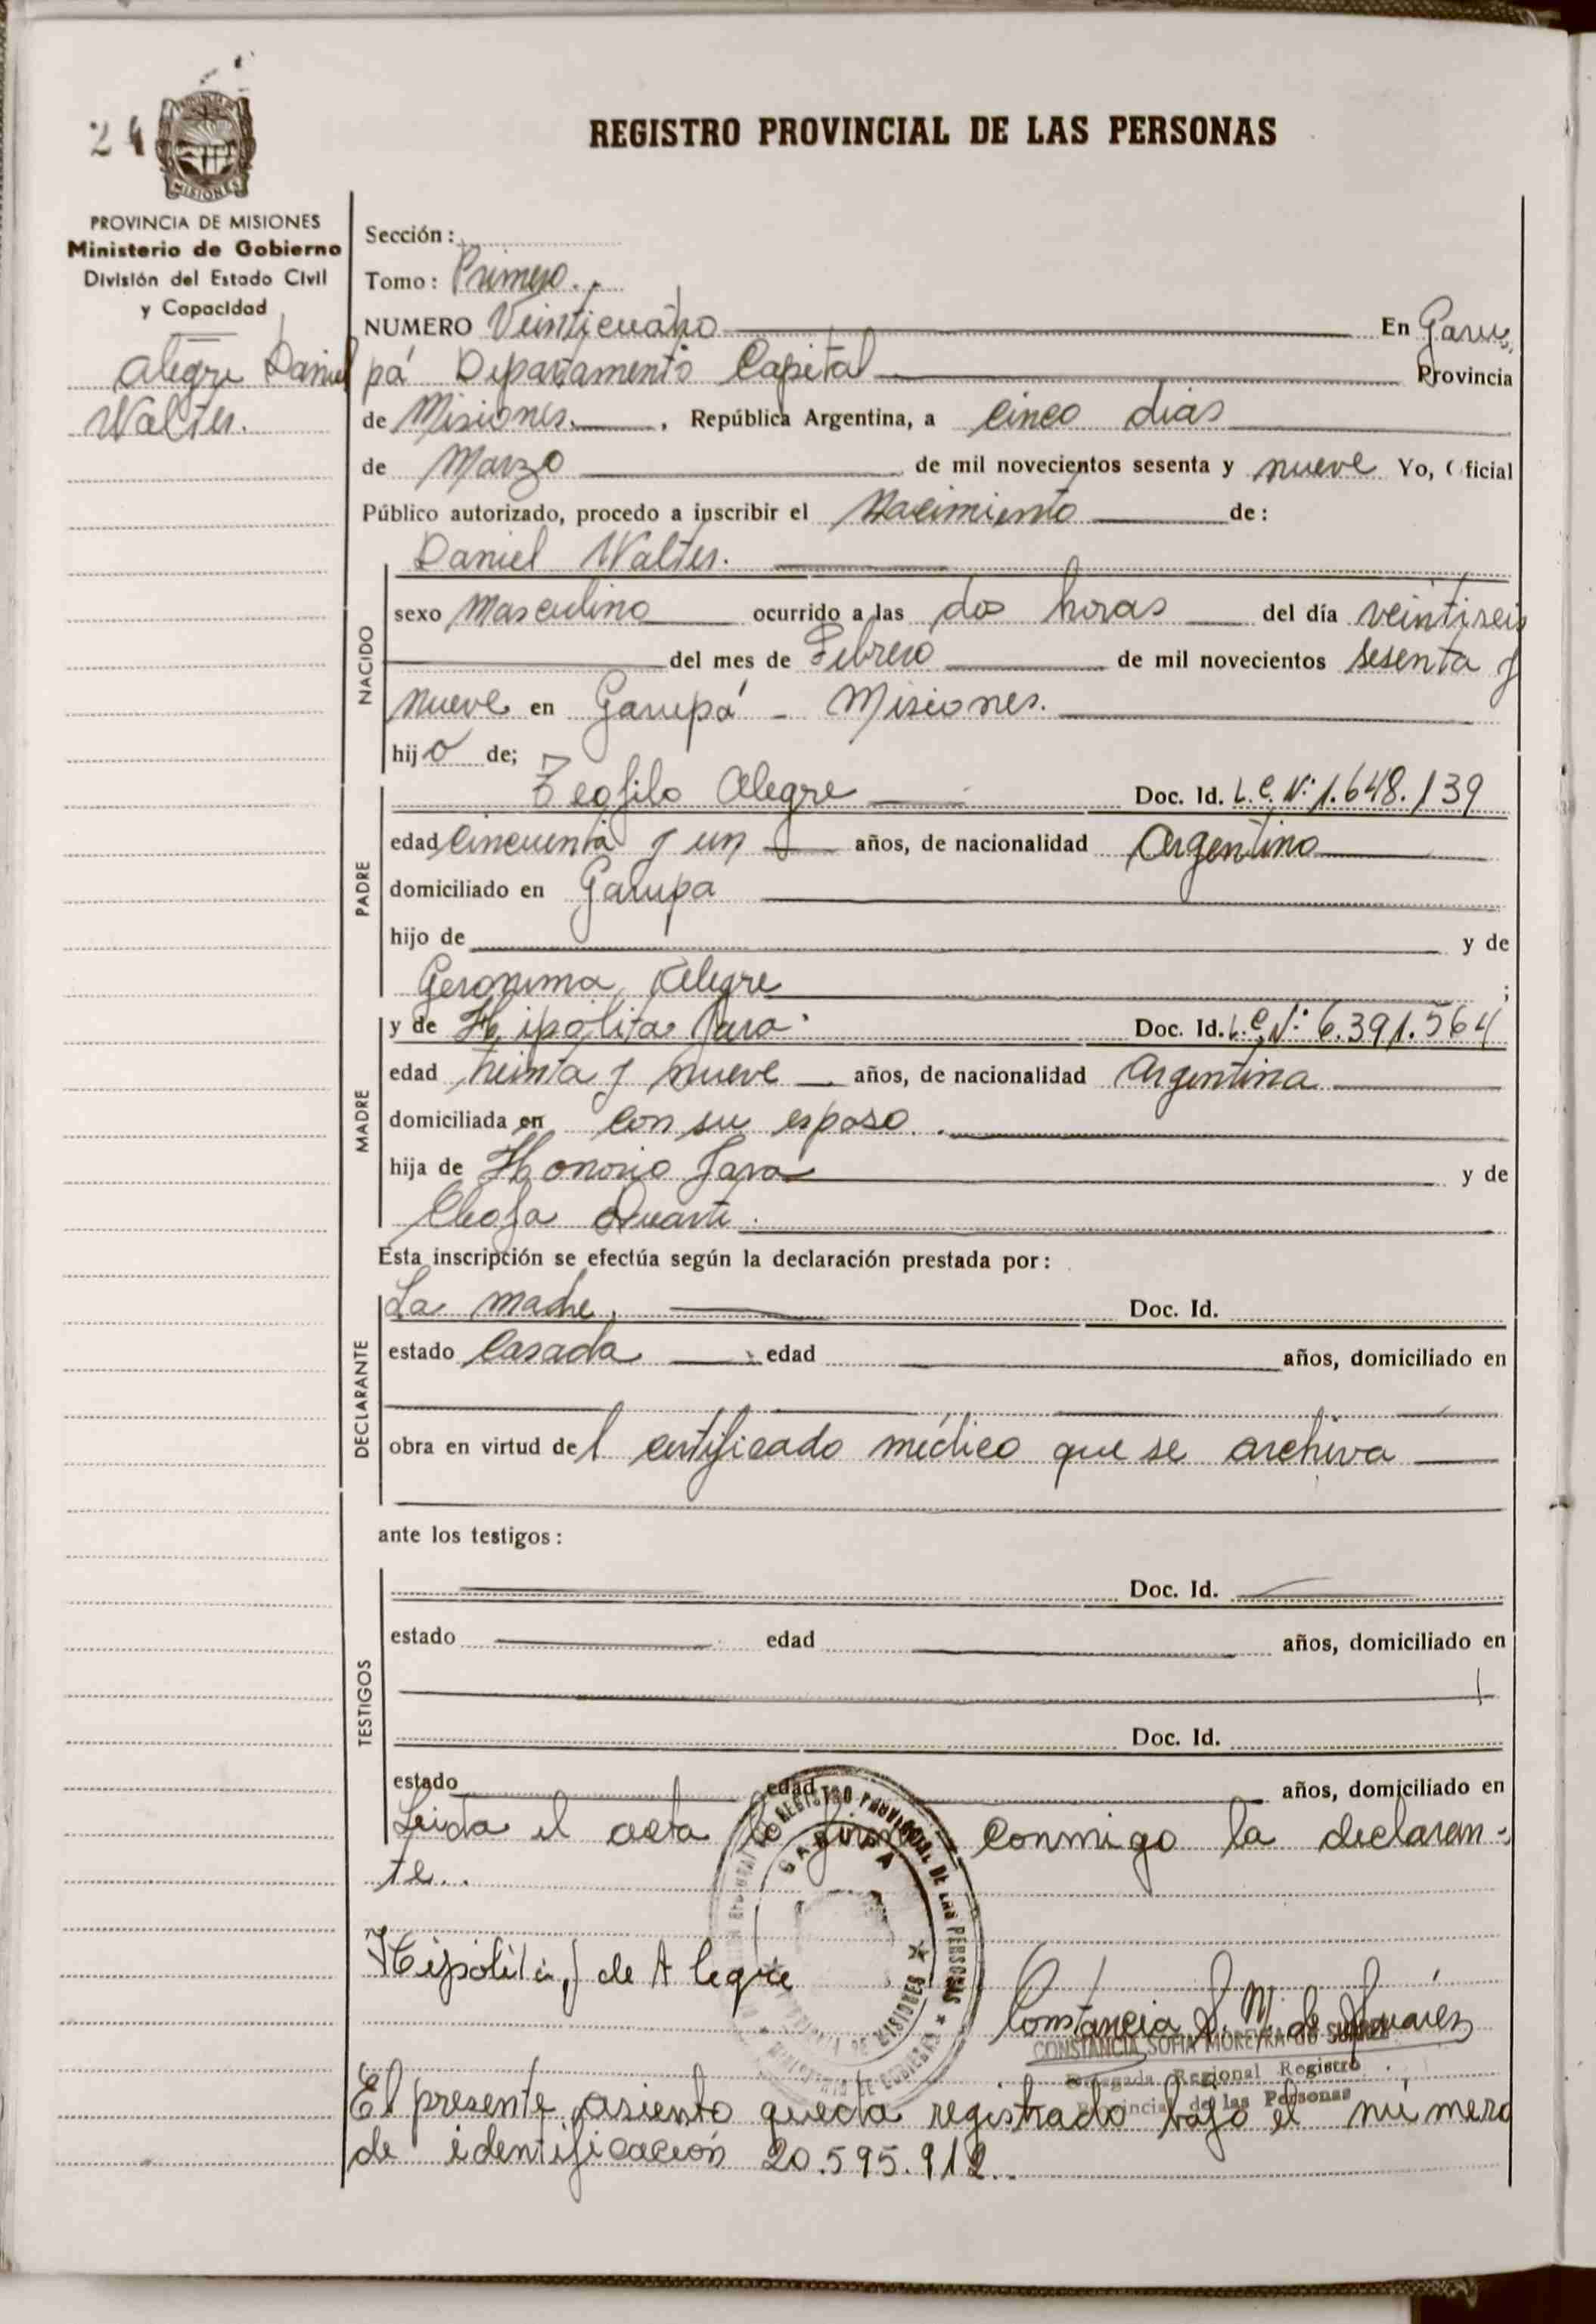 24
REGISTRO PROVINCIAL DE LAS PERSONAS
MISIONES
PROVINCIA DE MISIONES
Ministerio de Gobierno
División del Estado Civil
y Capacidad
Alegre Daniel
Walter.
Sección:
Tomo: Primero.
NUMERO Veinticuatro En Garu
pá Departamento Capital Provincia
de Misiones. , República Argentina, a cinco días
de Marzo de mil novecientos sesenta y nueve Yo, Oficial
Público autorizado, procedo a inscribir el Nacimiento de:
Daniel Walter.
NACIDO
sexo Masculino ocurrido a las dos horas del día veintiseis
del mes de Febrero de mil novecientos sesenta y
nueve en Garupá - Misiones.
hijo de;
PADRE
Teofilo Alegre Doc. Id. L.E. Nº: 1.648.139
edad cincuenta y un años, de nacionalidad Argentino
domiciliado en Garupá
hijo de y de
Geronima Alegre ;
MADRE
y de Hipolita Jara Doc. Id. L.C. Nº: 6.391.564
edad treinta y nueve años, de nacionalidad Argentina
domiciliada en con su esposo.
hija de Honorio Jara y de
Cleofa Duarte.
Esta inscripción se efectúa según la declaración prestada por:
DECLARANTE
La madre. Doc. Id.
estado Casada edad años, domiciliado en
obra en virtud del certificado médico que se archiva
ante los testigos:
TESTIGOS
Doc. Id.
estado edad años, domiciliado en
Doc. Id.
estado edad años, domiciliado en
Leida el acta lo firma conmigo la declaran-
te.
REGISTRO PROVINCIAL DE LAS PERSONAS
GARUPA
MINISTERIO DE GOBIERNO
MISIONES
Hipolita J de Alegre
Constancia S. M. de Suarez
CONSTANCIA SOFIA MOREYRA DE SUAREZ
Delegada Regional Registro
Provincial de las Personas
El presente asiento queda registrado bajo el número
de identificación 20.595.912.